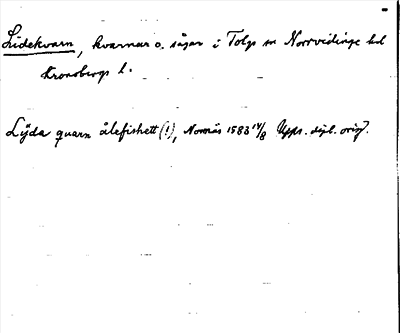 Lidekvarn, kvarnar o. sågar i Tolgs sn Norrvidinge hd
Kronobergs l.
Lÿda quarn ålefiskett (!), Norrnäs 1583 14/8 Upps. dipl. orig.